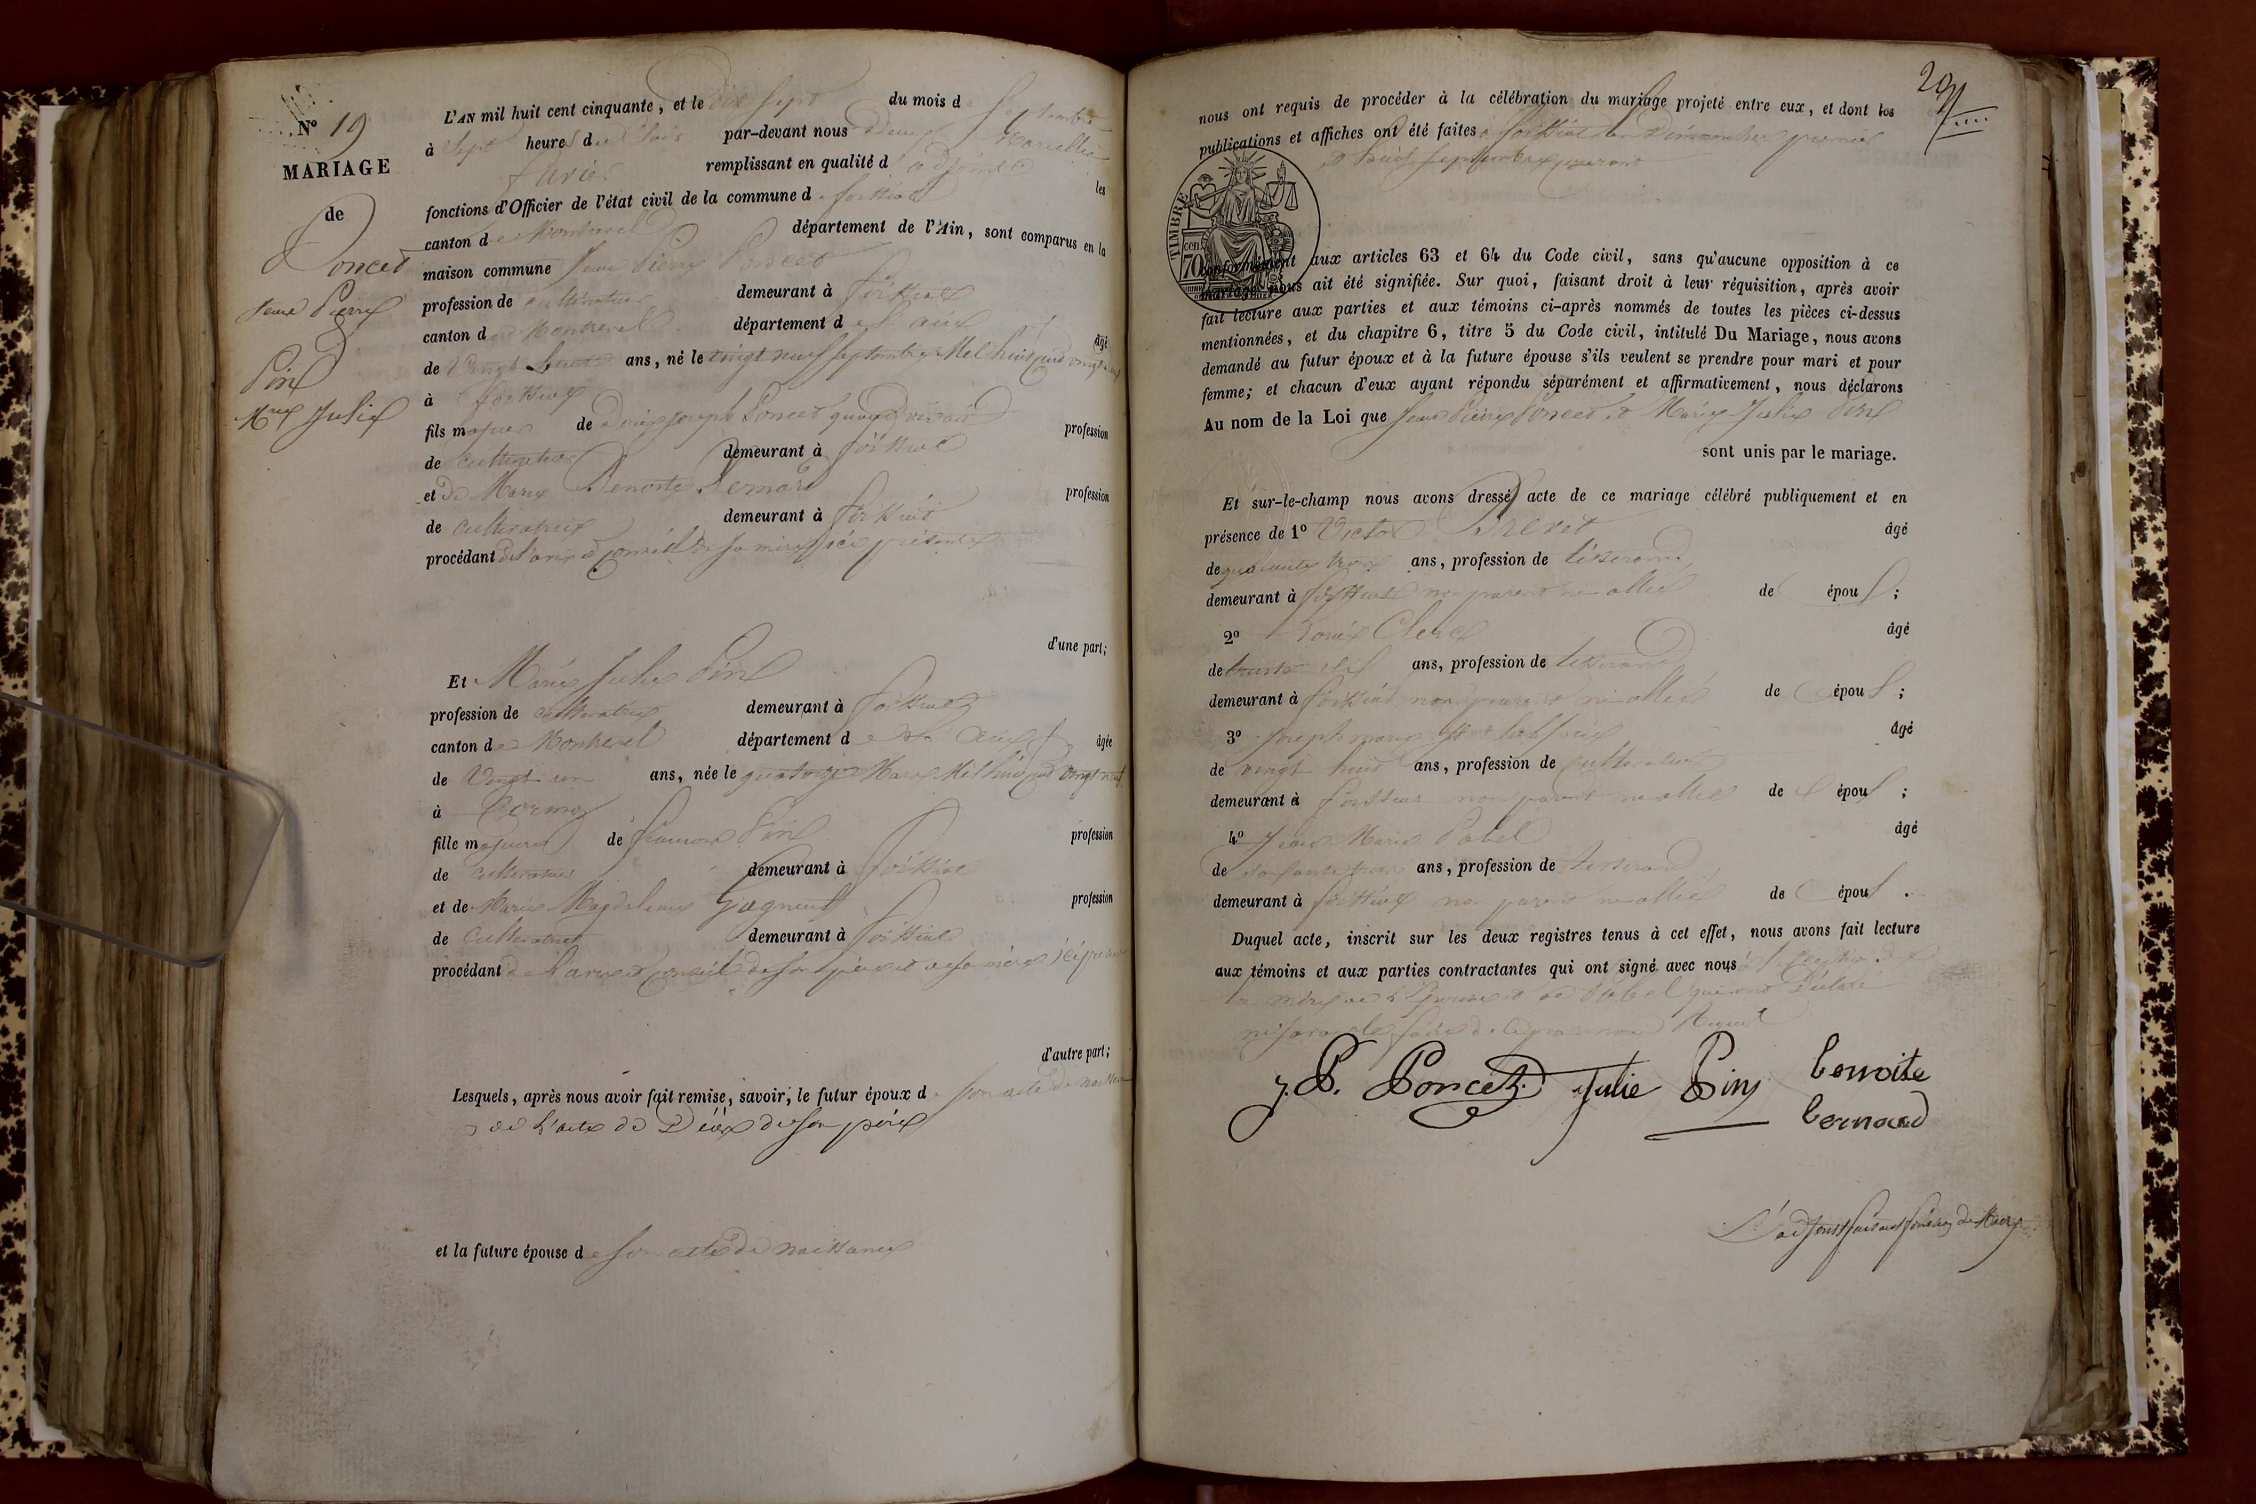 N° 19
MARIAGE
de
Poncet
Jean Pierre
&
Pin
Mie Julie
L'AN mil huit cent cinquante, et le dix sept du mois de Septembre
à Sept heures du Soir par-devant nous
remplissant en qualité d'adjoint les
fonctions d'Officier de l'état civil de la commune de foissiat
canton de Montrevel département de l'Ain, sont comparus en la
maison commune Jean Pierre Poncet
profession de cultivateur demeurant à foissiat
canton de Montrevel département de l'ain âgé
de Vingt ans, né le vingt neuf Septembre Mil huit cent vingt
à foissiat
fils majeur de joseph Poncet profession
de cultivateur demeurant à foissiat
et de Marie Benoite Bernard profession
de cultivatrice demeurant à foissiat
procédant de l'avis et conseil de sa mère ici présente
d'une part;
Et Marie Julie Pin
profession de cultivatrice demeurant à foissiat
canton de Montrevel département de l'ain âgée
de Vingt un ans, née le quatorze Mars Mil huit cent vingt neuf
à Cormoz
fille majeure de Pin profession
de cultivateur demeurant à foissiat
et de Marie Magdelaine profession
de Cultivatrice demeurant à foissiat
procédant de l'avis et conseil de son père et de sa mère ici présents
d'autre part;
Lesquels, après nous avoir fait remise, savoir, le futur époux de son acte de naissance
et de l'acte de Décès de son père
et la future épouse de son acte de naissance
29
nous ont requis de procéder à la célébration du mariage projeté entre eux, et dont les
publications et affiches ont été faites à foissiat les Dimanches premier
et huit Septembre courant
TIMBRE
70 cen.
conformément aux articles 63 et 64 du Code civil, sans qu'aucune opposition à ce
mariage nous ait été signifiée. Sur quoi, faisant droit à leur réquisition, après avoir
fait lecture aux parties et aux témoins ci-après nommés de toutes les pièces ci-dessus
mentionnées, et du chapitre 6, titre 5 du Code civil, intitulé Du Mariage, nous avons
demandé au futur époux et à la future épouse s'ils veulent se prendre pour mari et pour
femme; et chacun d'eux ayant répondu séparément et affirmativement, nous déclarons
Au nom de la Loi que Jean Pierre Poncet et Marie Julie Pin
sont unis par le mariage.
Et sur-le-champ nous avons dressé acte de ce mariage célébré publiquement et en
présence de 1° Victor âgé
de quarante trois ans, profession de tisserand
demeurant à foissiat non parent ni allié de époux;
2° Louis Clerc âgé
de trente ans, profession de tisserand
demeurant à foissiat non parent ni allié de époux;
3° Joseph âgé
de vingt huit ans, profession de cultivateur
demeurant à foissiat non parent ni allié de époux;
4° Jean Marie Pobel âgé
de soixante trois ans, profession de tisserand
demeurant à foissiat non parent ni allié de époux.
Duquel acte, inscrit sur les deux registres tenus à cet effet, nous avons fait lecture
aux témoins et aux parties contractantes qui ont signé avec nous à l'exception de
la mère de l'Epouse et de Pobel qui ont déclaré
ne savoir le faire de ce
J. P. Poncet Julie Pin benoite
bernard
L'adjoint faisant fonction de Maire